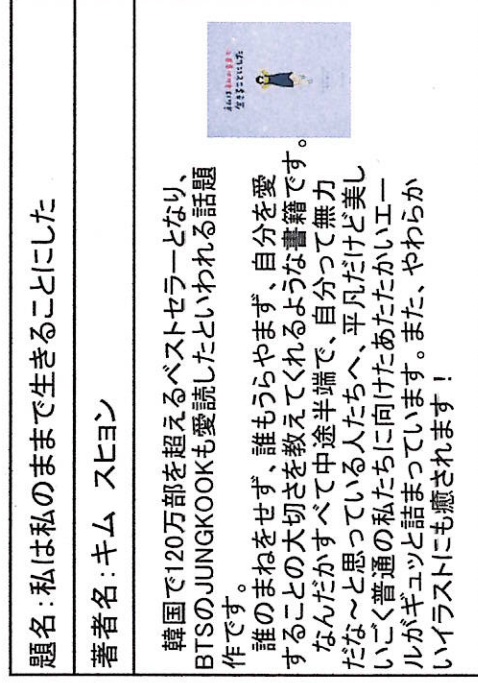 題名:私は私のままで生きることにした
著者名:キム　スヒョン
韓国で120万部を超えるベストセラーとなり、
BTSのJUNGKOOKも愛読したといわれる話題
作です。
誰のまねをせず、誰もうらやまず、自分を愛
することの大切さを教えてくれるような書籍です。
なんだかすべて中途半端で、自分って無力
だな～と思っている人たちへ、平凡だけど美し
いごく普通の私たちに向けたあたたかいエー
ルがギュッと詰まっています。また、やわらか
いイラストにも癒されます！
私は私のままで
生きることにした